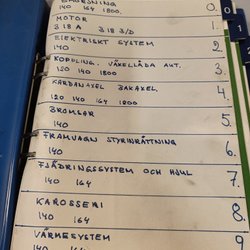 140 164 1800. 0.
MOTOR
B18A B18 B/D 1.
ELEKTRISKT SYSTEM
140 2.
KOPPLING. VÄXELLÅDA AXT.
120 140 1800 3.
KARDANAXEL BAKAXEL.
120 140 164 1800 4.
BROMSAR
140 5.
FRAMVAGN STYRINRÄTTNING
140 6.
FJÄDRINGSSYSTEM OCH HJUL
140 164 7.
KAROSSERI
140 164 8.
VÄRMESYSTEM
140 164 9